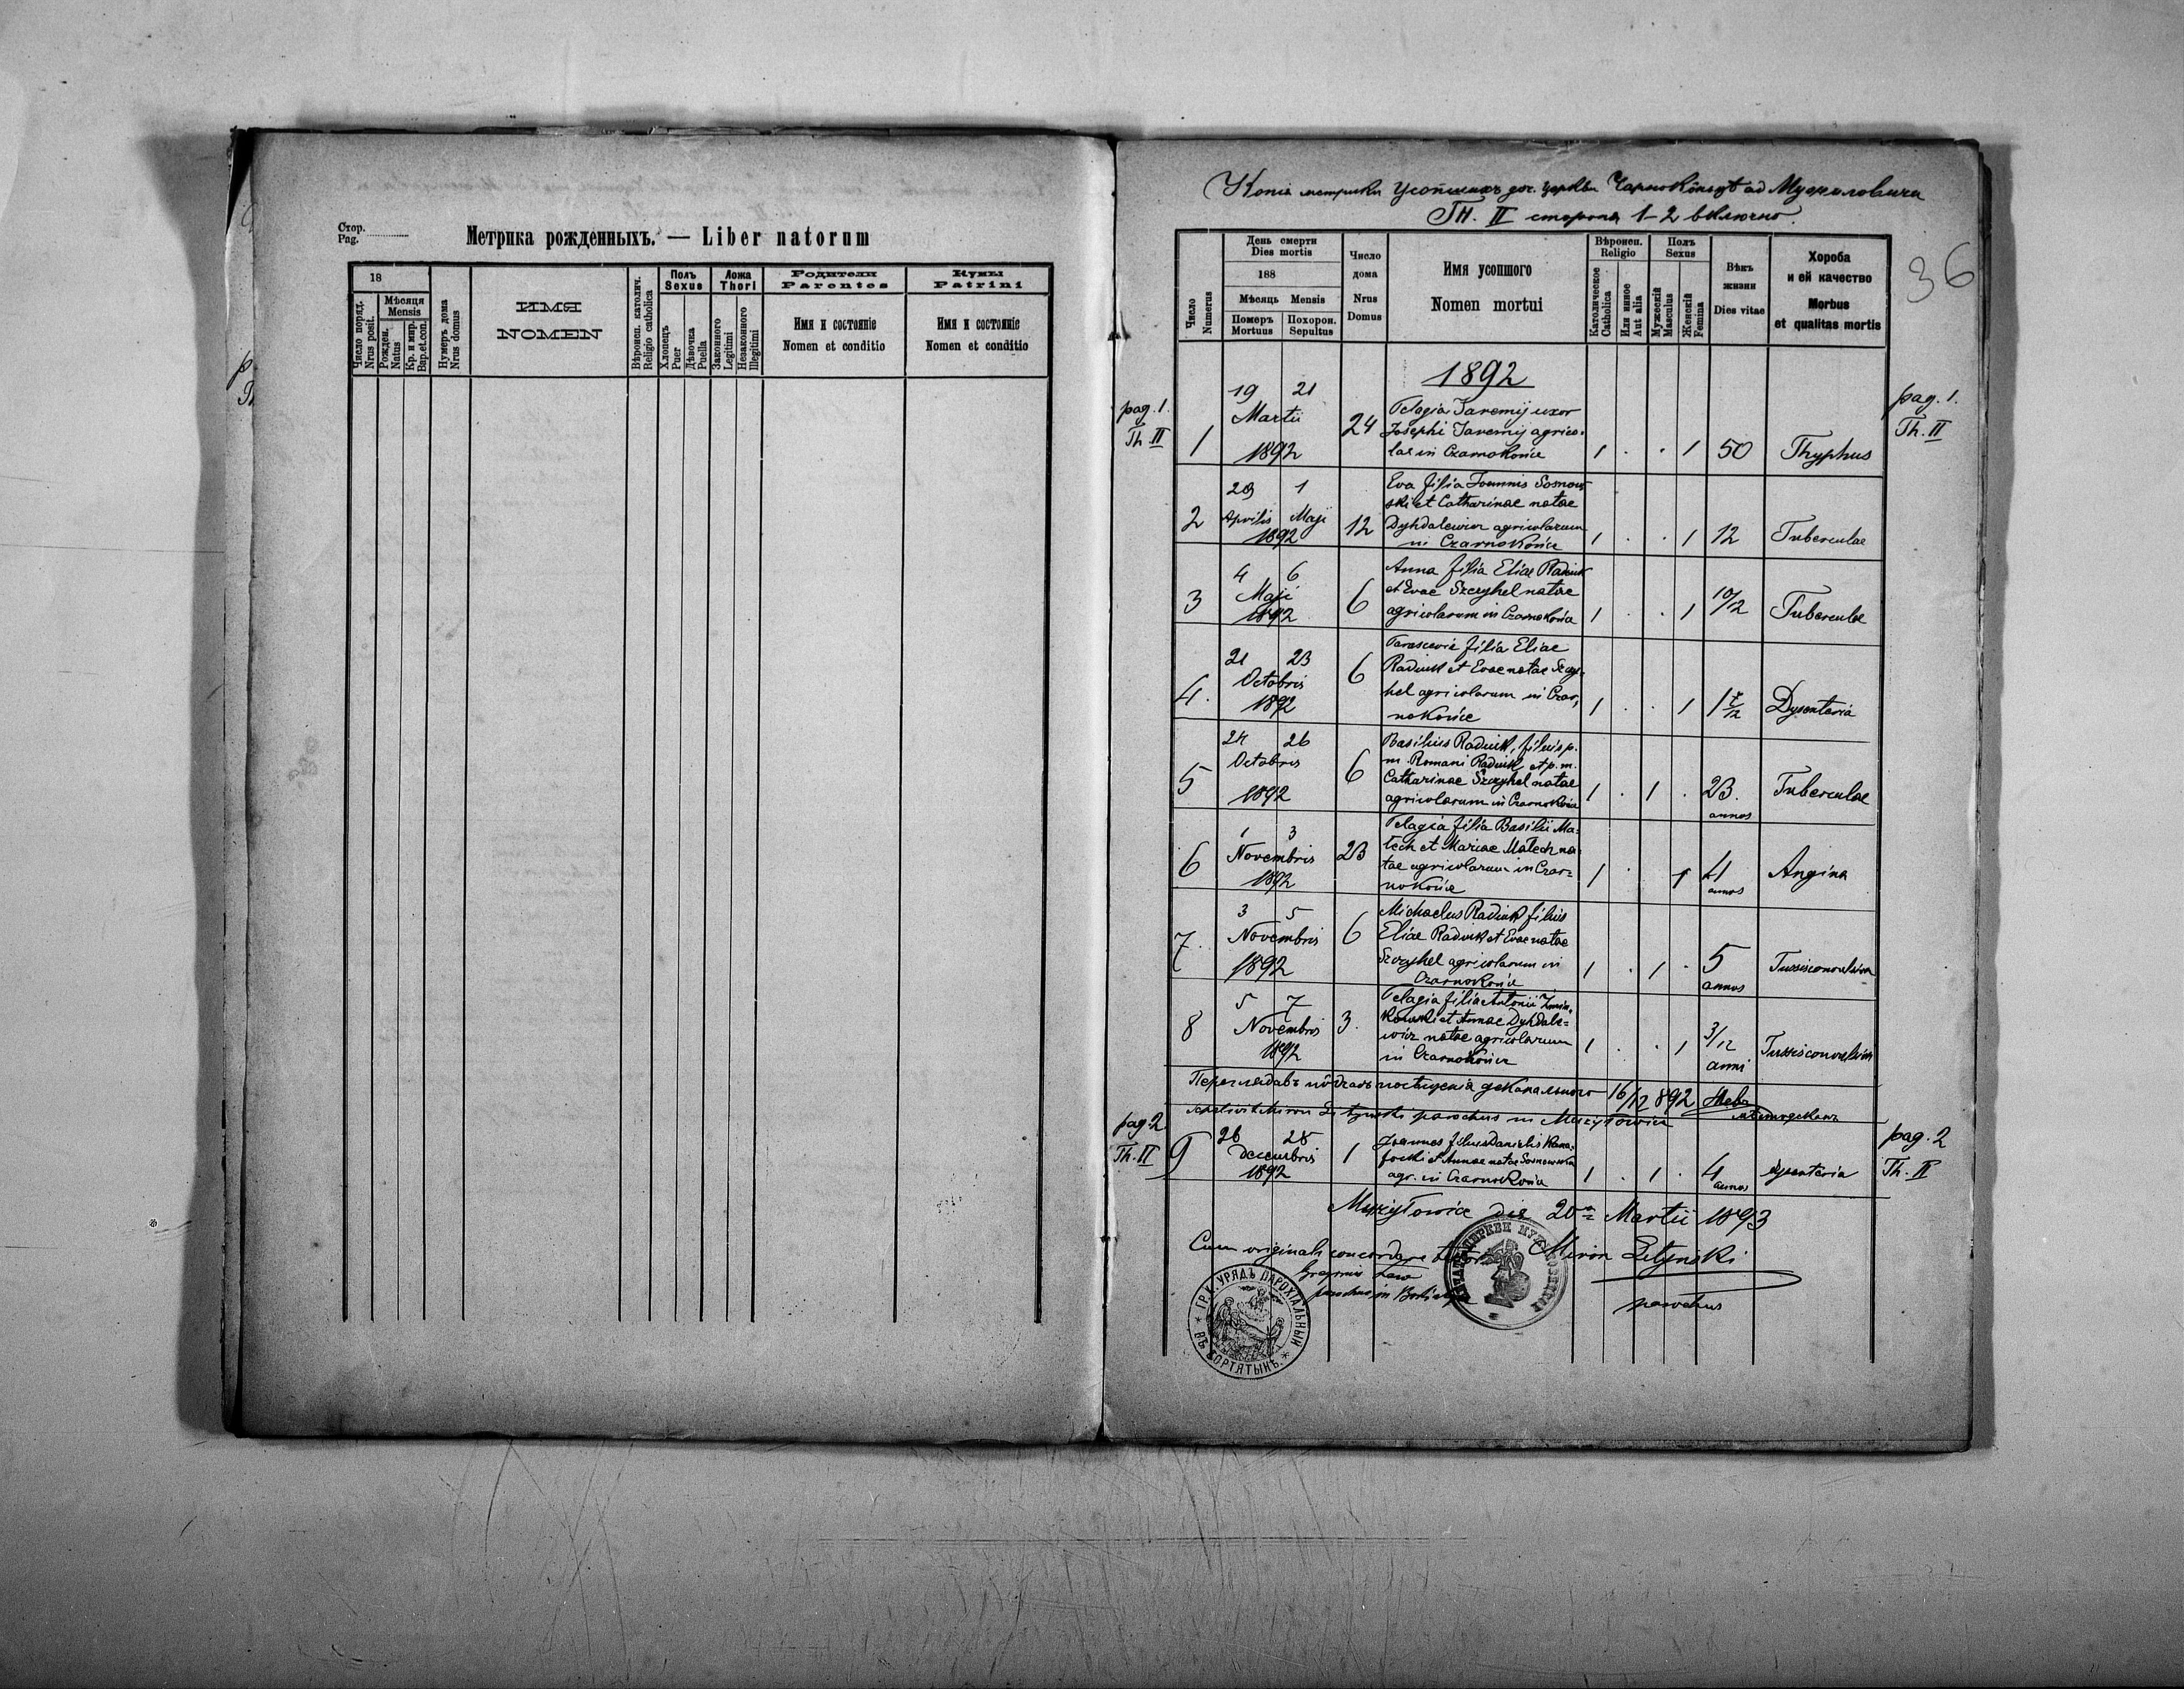 Стор.
Pag.
Метрика рожденныхъ. — Liber natorum
18
Число поряд.
Nrus posit.
Мѣсяця
Mensis
Рожден.
Natus
Кр. и мир.
Bap.et.con.
Нумеръ дома
Nrus domus
ИМЯ
NOMEN
Вѣроисп. католич.
Religio catholica
Полъ
Sexus
Хлопецъ
Puer
Дѣвочка
Puella
Ложа
Thori
Законного
Legitimi
Незаконного
Illegitimi
Родители
Parentes
Имя и состояніе
Nomen et conditio
Кумы
Patrini
Имя и состояніе
Nomen et conditio
Копіа метрики усопшихъ доч. церкви
Тн. II сторона 1-2 включно.
36
Число
Numerus
День смерти
Dies mortis
188
Мѣсяць Mensis
Померъ
Mortuus
Похорон.
Sepultus
Число
дома
Nrus
Domus
Имя усопшого
Nomen mortui
Вѣроисп.
Religio
Католическое
Catholica
Или инное
Aut alia
Полъ
Sexus
Мужескій
Masculus
Женскій
Femina
Вѣкъ
жизни
Dies vitae
Хороба
и ей качество
Morbus
et qualitas mortis
1892
pag. 1.
Th. II
1
19 21
Martii
1892
24
Pelagia Jaremij uxor
Josephi Jaremij agrico-
lae in Czarnokońce
1 . . 1
50
Thyphus
pag. 1.
Th. II
2
29 1
Aprilis Maji
1892
12
Eva filia Joannis Sosnow
ski et Catharinae natae
Dyhdalewicz agricolarum
in Czarnokońce
1 . . 1
12
Tuberculae
3
4 6
Maji
1892
6
Anna filia Eliae Raduk
et Evae Szczyhel natae
agricolarum in Czarnokońce
1 . . 1
10/12
Tuberculae
4.
21 23
Octobris
1892
6
Parascevia filia Eliae
Raduk et Evae natae Szczy-
hel agricolarum in Czar,
nokońce
1 . . 1
Dysentaria
5
24 26
Octobris
1892
6
Basilius Raduk, filius p.
m. Romani Raduk et p. m.
Catharinae Szczyhel natae
agricolarum in Czarnokońce
1 . 1 .
23.
annos
Tuberculae
6
1 3
Novembris
1892
23
Pelagia filia Basilii Ma-
tech et Mariae Matech na-
tae agricolarum in Czar=
nokońce
1 . 1
4
annos
Angina
7.
3 5
Novembris
1892
6
Michaelus Raduk filius
Eliae Raduk et Evae natae
Szczyhel agricolarum in
Czarnokońce
1 . 1 .
5
annos
Tussis convulsiva
8
5 7
Novembris
1892
3.
Pelagia filia Antonii
et Annae Dyhdale=
wicz natae agricolarum
in Czarnokońce
1 . . 1
3/12
anni
Tussis convulsiva
Переглядавъ подчасъ посѣщенія деканального 16/12 892
Miron Litynski parochus in Mużyłowice
pag. 2
Th. II
9
26 28
Decembris
1892
1
Joannes filius Danielis
et Annae natae Sosnowska
agr. in Czarnokońce
1 . 1 .
4
annos
dysentaria
pag. 2
Th. II
Mużyłowice die 20 Martii 1893
Cum originali concordare testor
Miron Litynski
parochus
parochus in
ГР. К. УРЯДЪ ПАРОХІАЛЬНЫЙ
ВЪ БОРТЯТЫНѢ